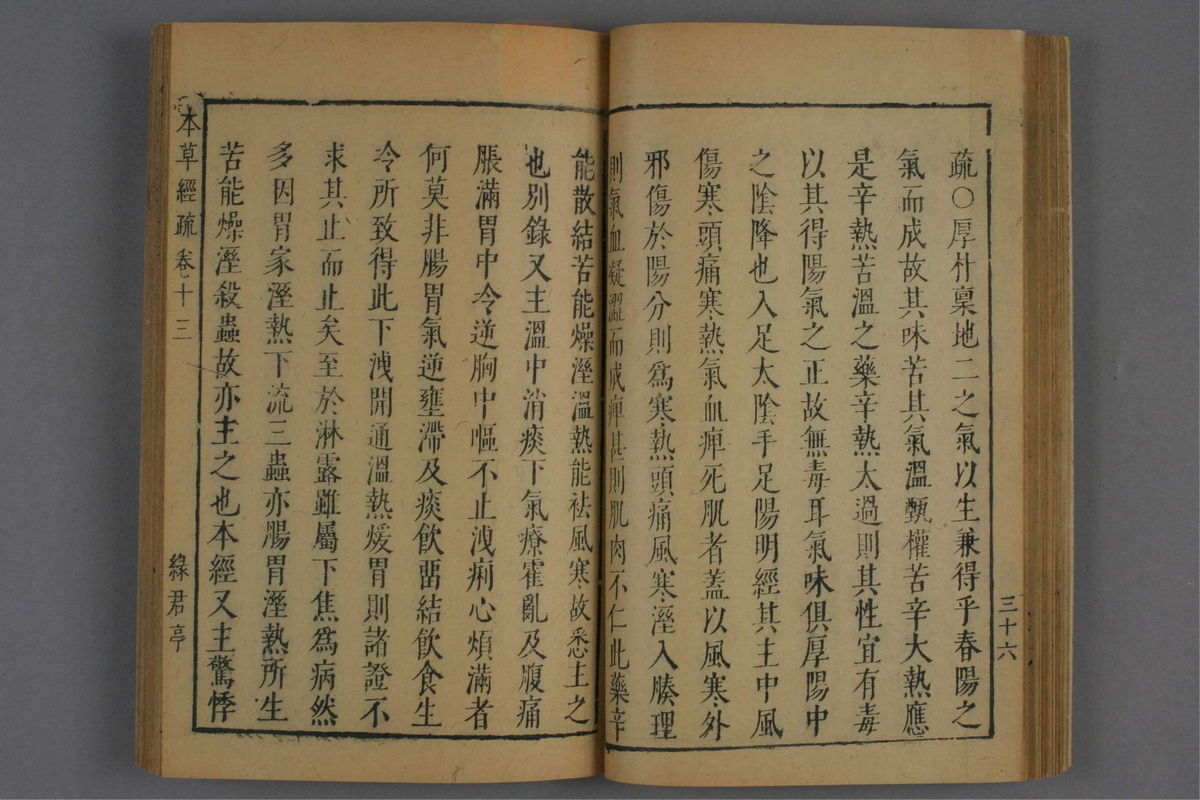 三十六
疏○厚朴稟地二之氣以生兼得乎春陽之
氣而成故其味苦其氣溫甄權苦辛大熱應
是辛熱苦溫之藥辛熱太過則其性宜有毒
以其得陽氣之正故無毒耳氣味俱厚陽中
之陰降也入足太陰手足陽明經其主中風
傷寒頭痛寒熱氣血痺死肌者蓋以風寒外
邪傷於陽分則爲寒熱頭痛風寒溼入腠理
則氣血凝澀而成痺甚則肌肉不仁此藥辛
能散結苦能燥溼溫熱能祛風寒故悉主之
也別錄又主溫中消痰下氣療霍亂及腹痛
脹滿胃中冷逆胸中嘔不止洩痢心煩滿者
何莫非腸胃氣逆壅滯及痰飲畱結飲食生
冷所致得此下洩開通溫熱煖胃則諸證不
求其止而止矣至於淋露雖屬下焦爲病然
多因胃家溼熱下流三蟲亦腸胃溼熱所生
苦能燥溼殺蟲故亦主之也本經又主驚悸
本草經疏 卷十三
綠君亭